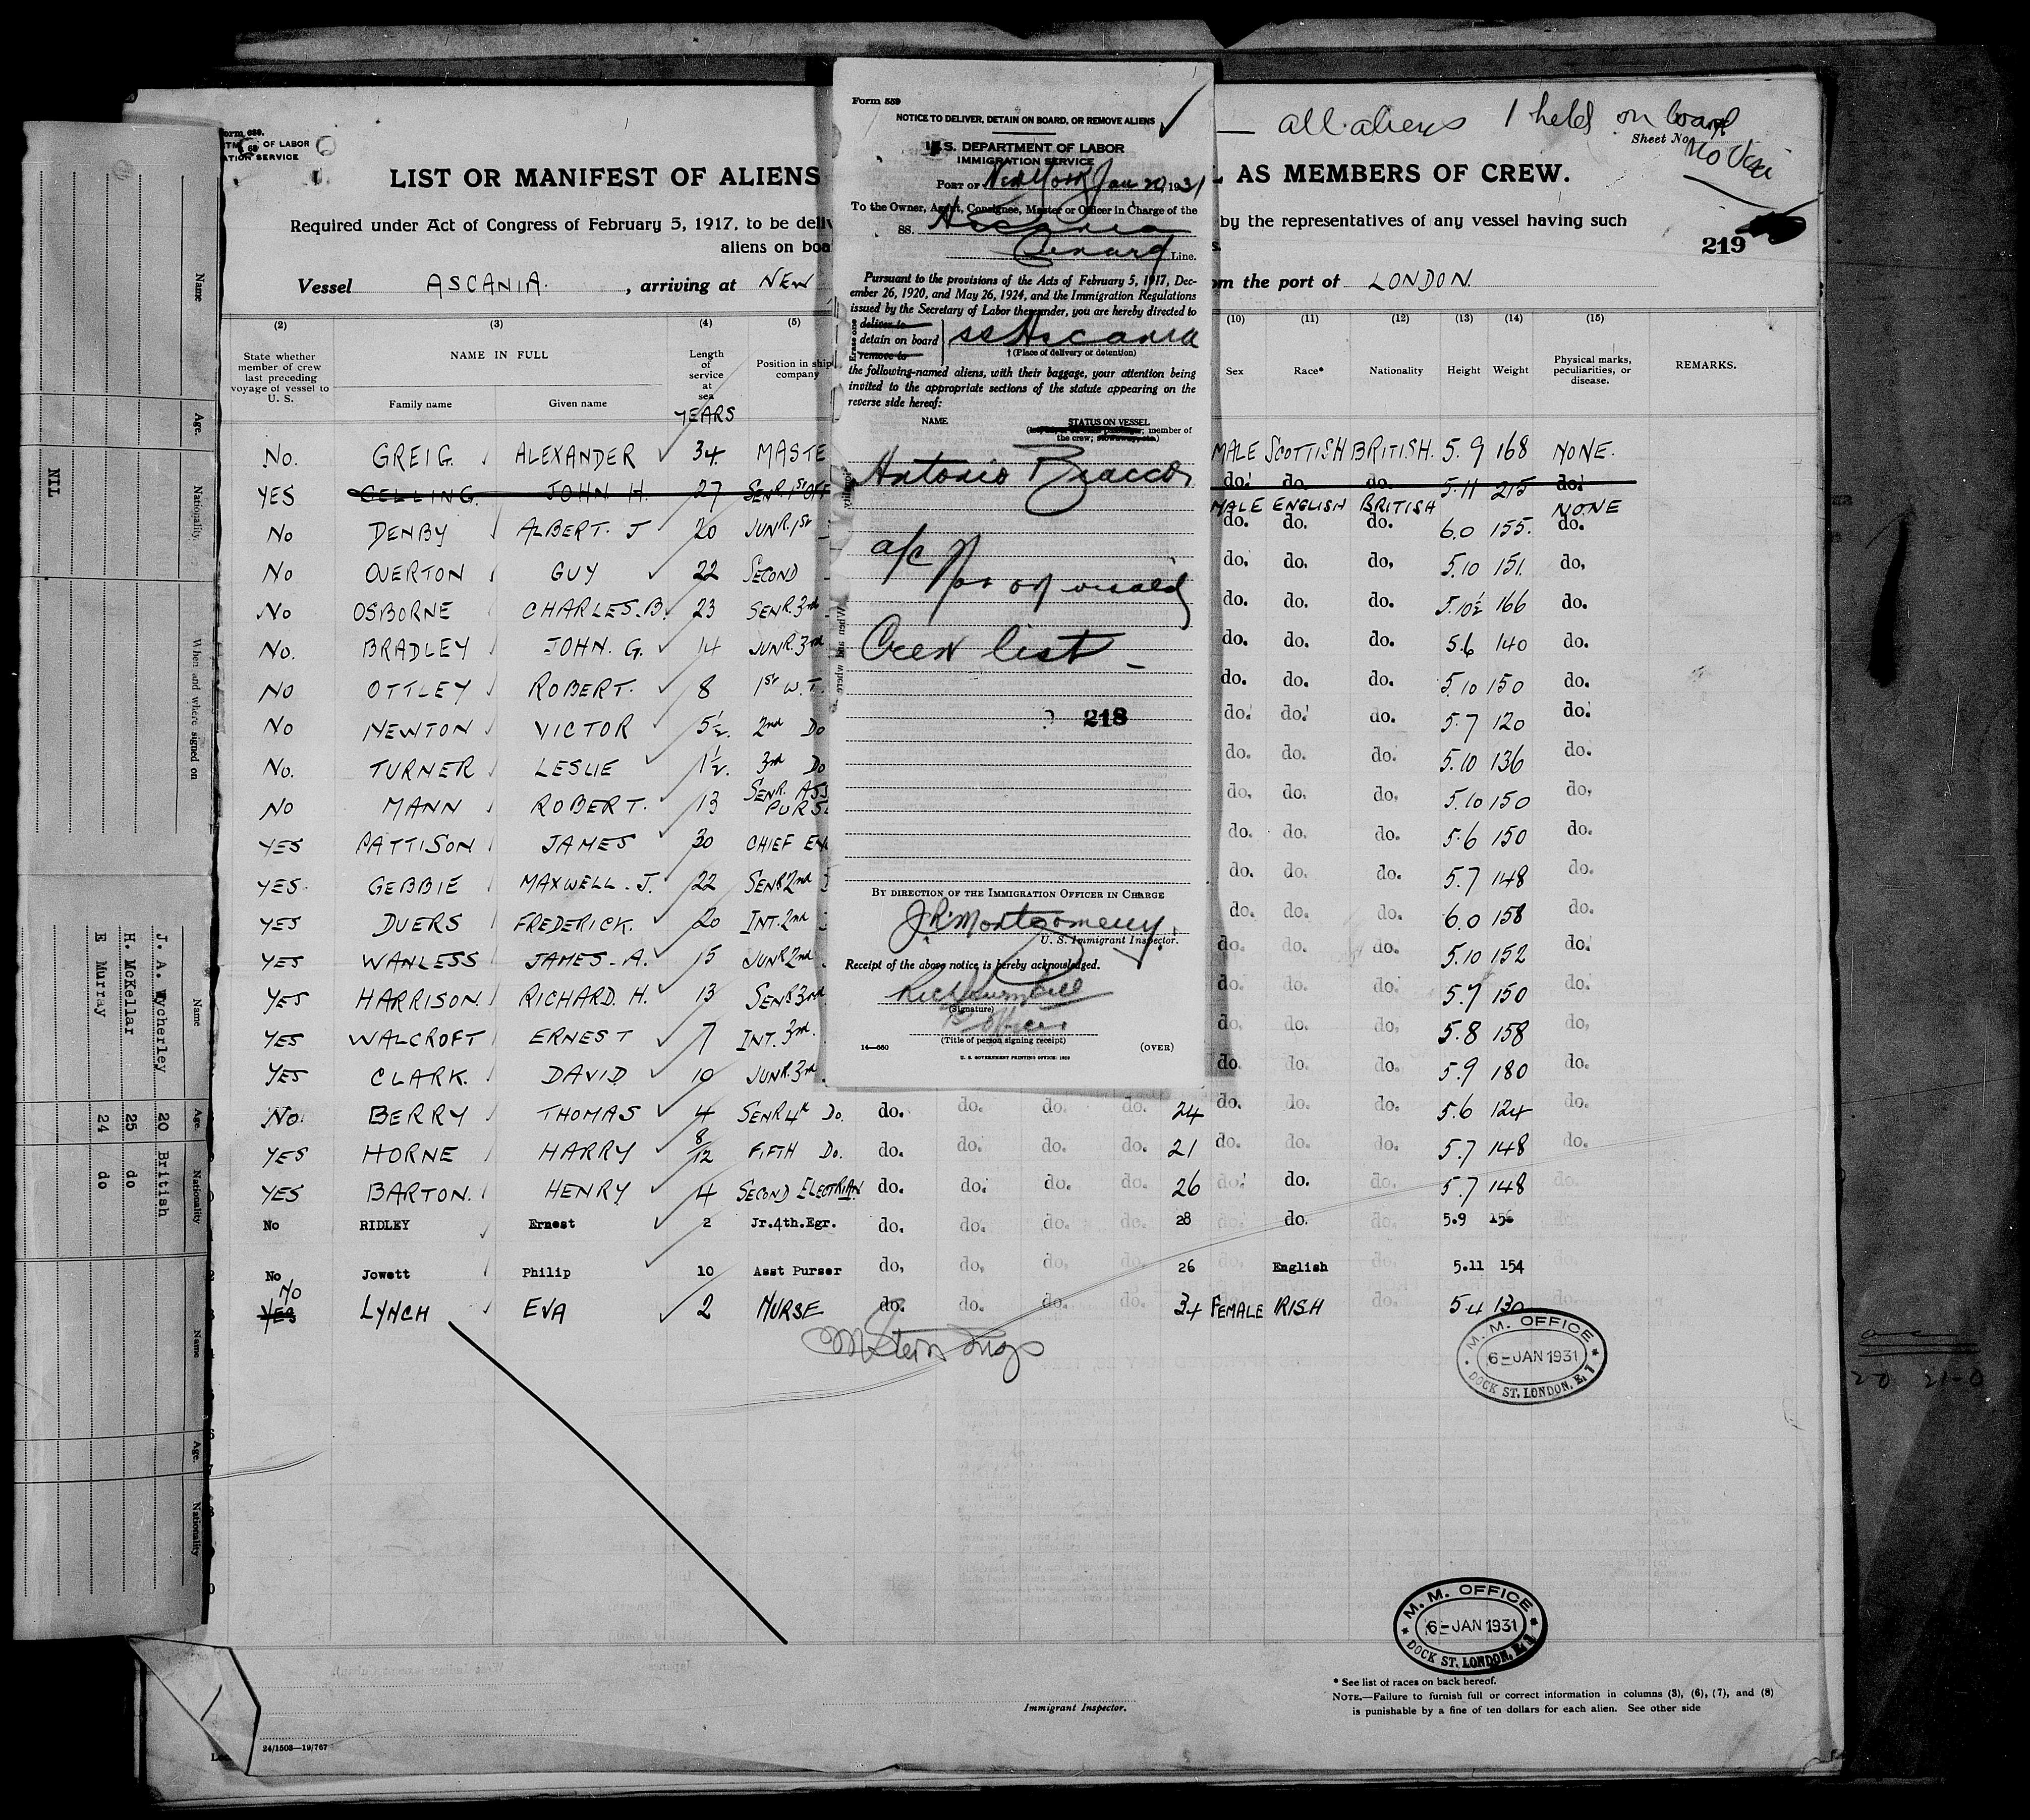 Form 680.
OF LABOR
ATION SERVICE
LIST OR MANIFEST OF ALIENS
AS MEMBERS OF CREW.
all aliens 1 held on board
Sheet No.
no Visa
Required under Act of Congress of February 5, 1917, to be
by the representatives of any vessel having such
aliens on
219
Vessel ASCANIA. , arriving at NEW
the port of LONDON.
(2) (3) (4) (5) (10) (11) (12) (13) (14) (15)
State whether member of crew last preceding voyage of vessel to U. S.
NAME IN FULL
Family name Given name
Length of service at sea
YEARS
Position in ship's company
Sex Race* Nationality Height Weight
Physical marks, peculiarities, or disease.
REMARKS.
No. GREIG. ALEXANDER 34. MASTE MALE SCOTTISH BRITISH. 5.9 168 NONE.
YES GELLING JOHN H. 27 SENR. 1st OFF do. do. do. 5.11 215 do.
MALE ENGLISH BRITISH NONE
No DENBY ALBERT. J 20 JUNR. 1st do. do. do. 6.0 155. do.
No OVERTON GUY 22 SECOND do. do. do. 5.10 151. do.
No OSBORNE CHARLES. B. 23 SENR. 3rd do. do. do. 5.10½ 166 do.
No. BRADLEY JOHN. G. 14 JUNR. 3rd do. do. do. 5.6 140 do.
No OTTLEY ROBERT. 8 1st W.T. do. do. do. 5.10 150 do.
No NEWTON VICTOR 5½. 2nd Do do. do. do. 5.7 120 do.
No. TURNER LESLIE 1½. 3rd Do do. do. do. 5.10 136 do.
No MANN ROBERT. 13 SENR. ASS PURS do. do. do. 5.10 150 do.
YES PATTISON JAMES 30 CHIEF EN do. do. do. 5.6 150 do.
YES. GEBBIE MAXWELL. J. 22 SENR 2nd do. do. do. 5.7 148 do.
YES DUERS FREDERICK. 20 INT. 2nd do. do. do. 6.0 158 do.
YES WANLESS JAMES. A. 15 JUNR 2nd do. do. do. 5.10 152 do.
YES HARRISON. RICHARD. H. 13 SENR 3rd do. do. do. 5.7 150 do.
YES WALCROFT ERNEST 7 INT. 3rd. do. do. do. 5.8 158 do.
YES CLARK. DAVID 10 JUNR. 3rd do. do. do. 5.9 180 do.
No. BERRY THOMAS 4 SENR 4th Do. do. do. do. do. 24 do. do. do. 5.6 124 do.
YES HORNE HARRY 8/12 FIFTH Do. do. do. do. do. 21 do. do. do. 5.7 148 do.
YES BARTON. HENRY 4 SECOND ELECTRIAN do. do. do. do. 26 do. do. do. 5.7 148
No RIDLEY Ernest 2 Jr.4th.Egr. do. do. do. do. 28 do. do. do. 5.9 156
No Jowett Philip 10 Asst Purser do. do. do. do. 26 do. English do. 5.11 154
No
YES LYNCH EVA 2 NURSE do. do. do. do. 34 FEMALE IRISH do. 5.4 130
M. M. OFFICE
6-JAN 1931
DOCK ST. LONDON, E. 1
M. M. OFFICE
6-JAN 1931
DOCK ST. LONDON, E. 1
Immigrant Inspector.
* See list of races on back hereof.
NOTE.—Failure to furnish full or correct information in columns (3), (6), (7), and (8)
is punishable by a fine of ten dollars for each alien. See other side
24/1508—19/767
Form 559
NOTICE TO DELIVER, DETAIN ON BOARD, OR REMOVE ALIENS
U.S. DEPARTMENT OF LABOR
IMMIGRATION SERVICE
PORT OF New York Jan 20, 1931
To the Owner, Agent, Consignee, Master or Officer in Charge of the
SS. Ascania
Cunard Line.
Pursuant to the provisions of the Acts of February 5, 1917, Dec-
ember 26, 1920, and May 26, 1924, and the Immigration Regulations
issued by the Secretary of Labor thereunder, you are hereby directed to
Erase one
deliver to
detain on board
remove to
ss Ascania
† (Place of delivery or detention)
the following-named aliens, with their baggage, your attention being
invited to the appropriate sections of the statute appearing on the
reverse side hereof:
NAME STATUS ON VESSEL
member of
the crew; stowaway, etc.)
Antonio
a/c
Not on visaed
Crew list —
218
BY DIRECTION OF THE IMMIGRATION OFFICER IN CHARGE
J.R. Montgomery.
U. S. Immigrant Inspector.
Receipt of the above notice is hereby acknowledged.
(Signature)
1st Officer
(Title of person signing receipt)
14—660 (OVER)
U. S. GOVERNMENT PRINTING OFFICE: 1928
Name Age. Nationality. When and where signed on
NIL
Name Age. Nationality
J. A. Wycherley 20 British
H. McKellar 25 do
E Murray 24 do
Name Age. Nationality
20 21-0